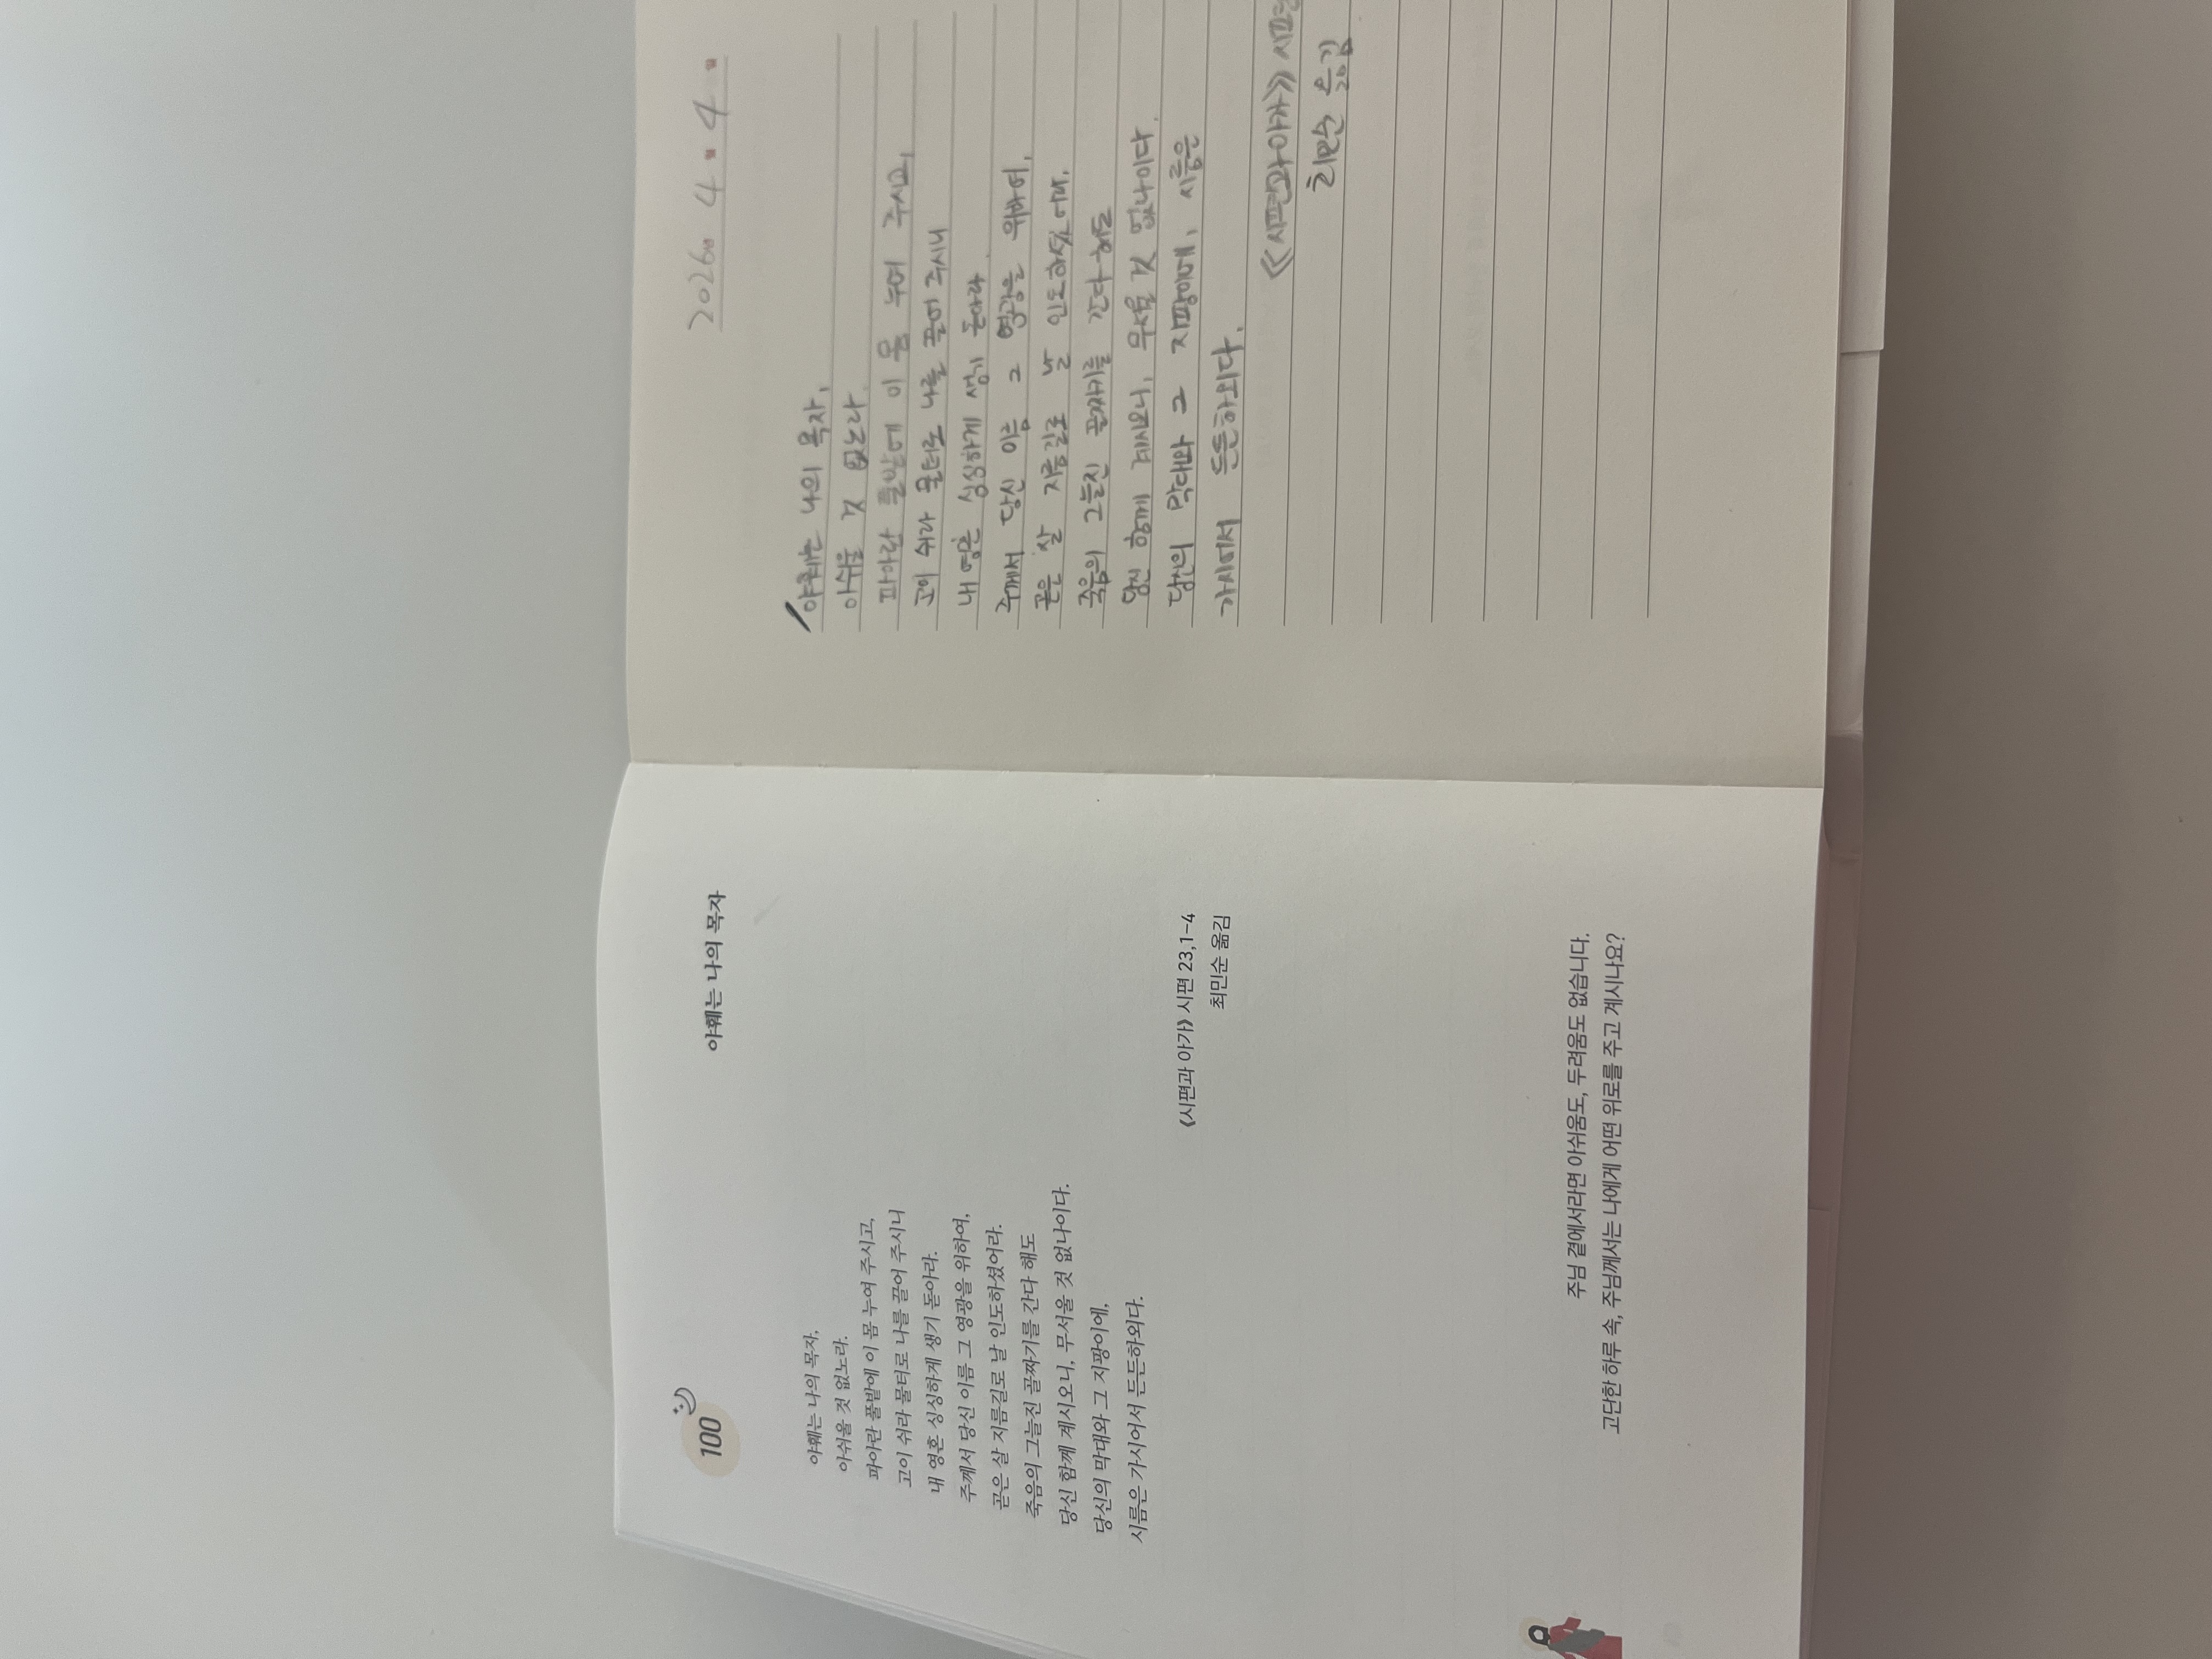 100
야훼는 나의 목자
야훼는 나의 목자,
아쉬울 것 없노라.
파아란 풀밭에 이 몸 누여 주시고,
고이 쉬라 물터로 나를 끌어 주시니
내 영혼 싱싱하게 생기 돋아라.
주께서 당신 이름 그 영광을 위하여,
곧은 살 지름길로 날 인도하셨어라.
죽음의 그늘진 골짜기를 간다 해도
당신 함께 계시오니, 무서울 것 없나이다.
당신의 막대와 그 지팡이에,
시름은 가시어서 든든하외다.
《시편과 아가》 시편 23,1-4
최민순 옮김
주님 곁에서라면 아쉬움도, 두려움도 없습니다.
고단한 하루 속, 주님께서는 나에게 어떤 위로를 주고 계시나요?
2026년 4월 4일
야훼는 나의 목자,
아쉬울 것 없노라.
파아란 풀밭에 이 몸 누여 주시고,
고이 쉬라 물터로 나를 끌어 주시니
내 영혼 싱싱하게 생기 돋아라.
주께서 당신 이름 그 영광을 위하여,
곧은 살 지름길로 날 인도하셨어라.
죽음의 그늘진 골짜기를 간다 해도
당신 함께 계시오니, 무서울 것 없나이다.
당신의 막대와 그 지팡이에, 시름은
가시어서 든든하외다.
《시편과 아가》 시편
최민순 옮김